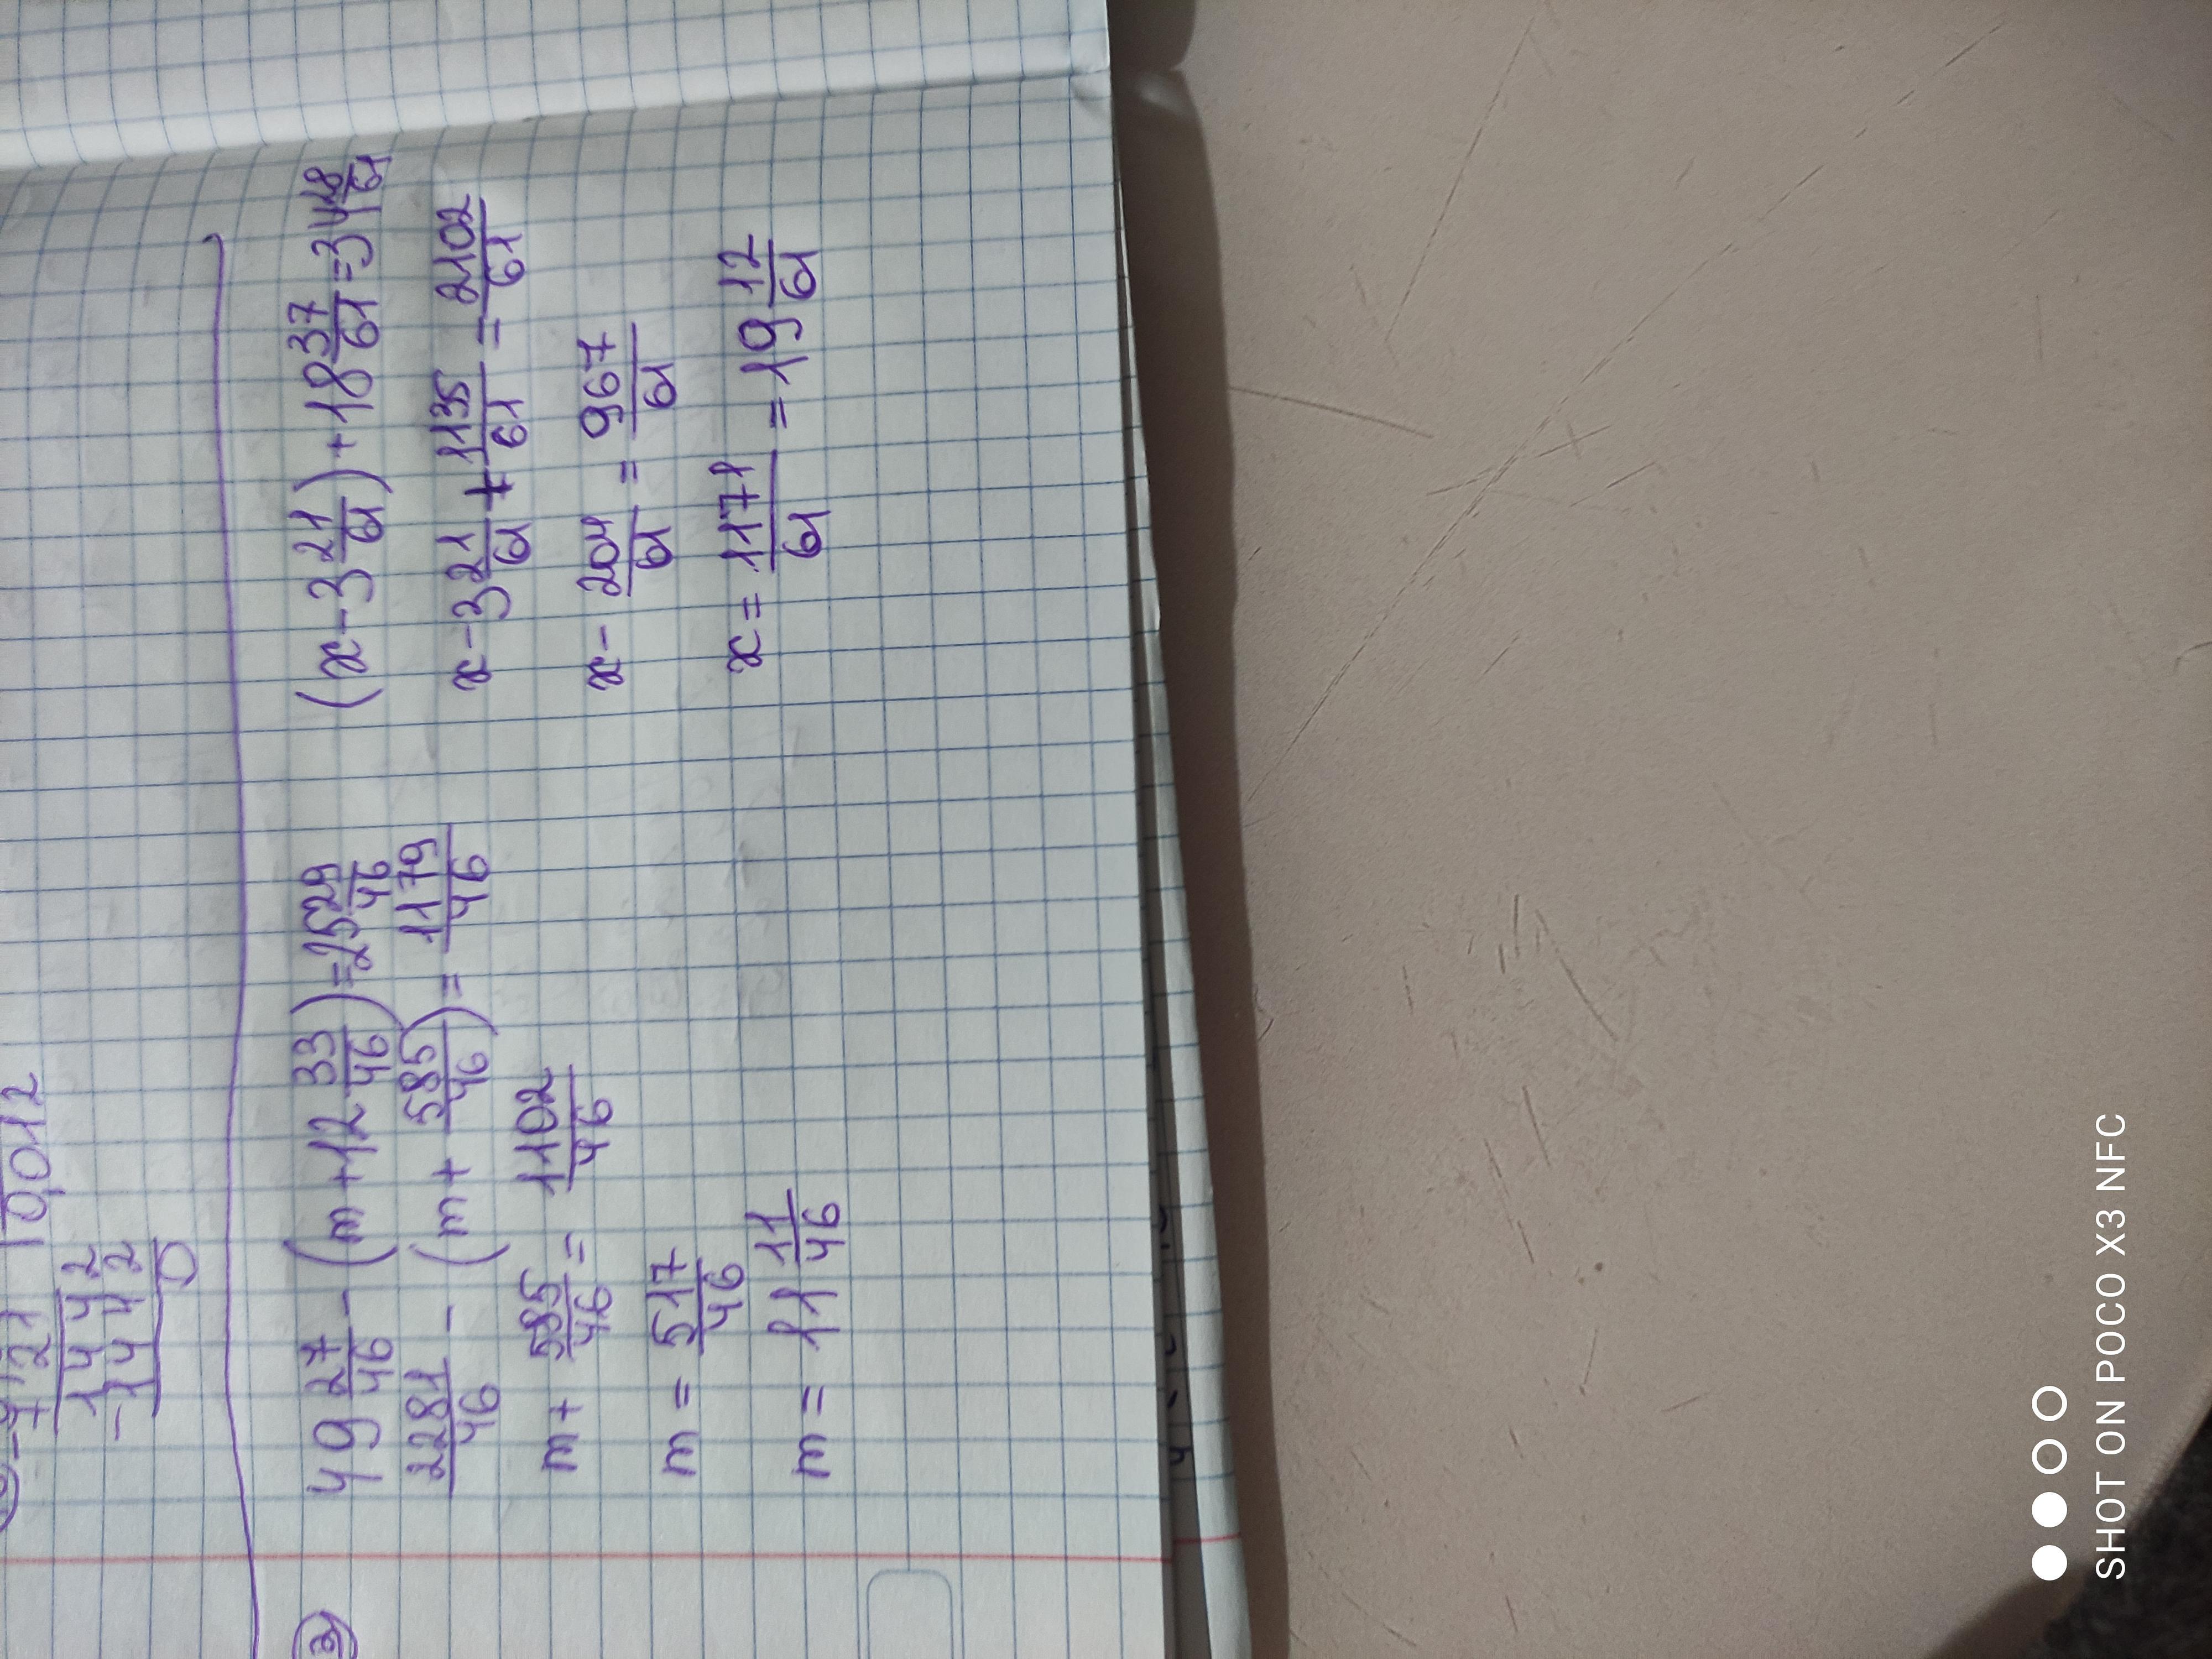 10,012
721
1442
-1442
0
3) 49 27/46 - (m + 12 33/46) = 25 29/46
2281/46 - (m + 585/46) = 1179/46
m + 585/46 = 1102/46
m = 517/46
m = 11 11/46
(x - 3 21/61) + 18 37/61 = 34 28/61
x - 3 21/61 + 1135/61 = 2102/61
x - 204/61 = 967/61
x = 1171/61 = 19 12/61
SHOT ON POCO X3 NFC